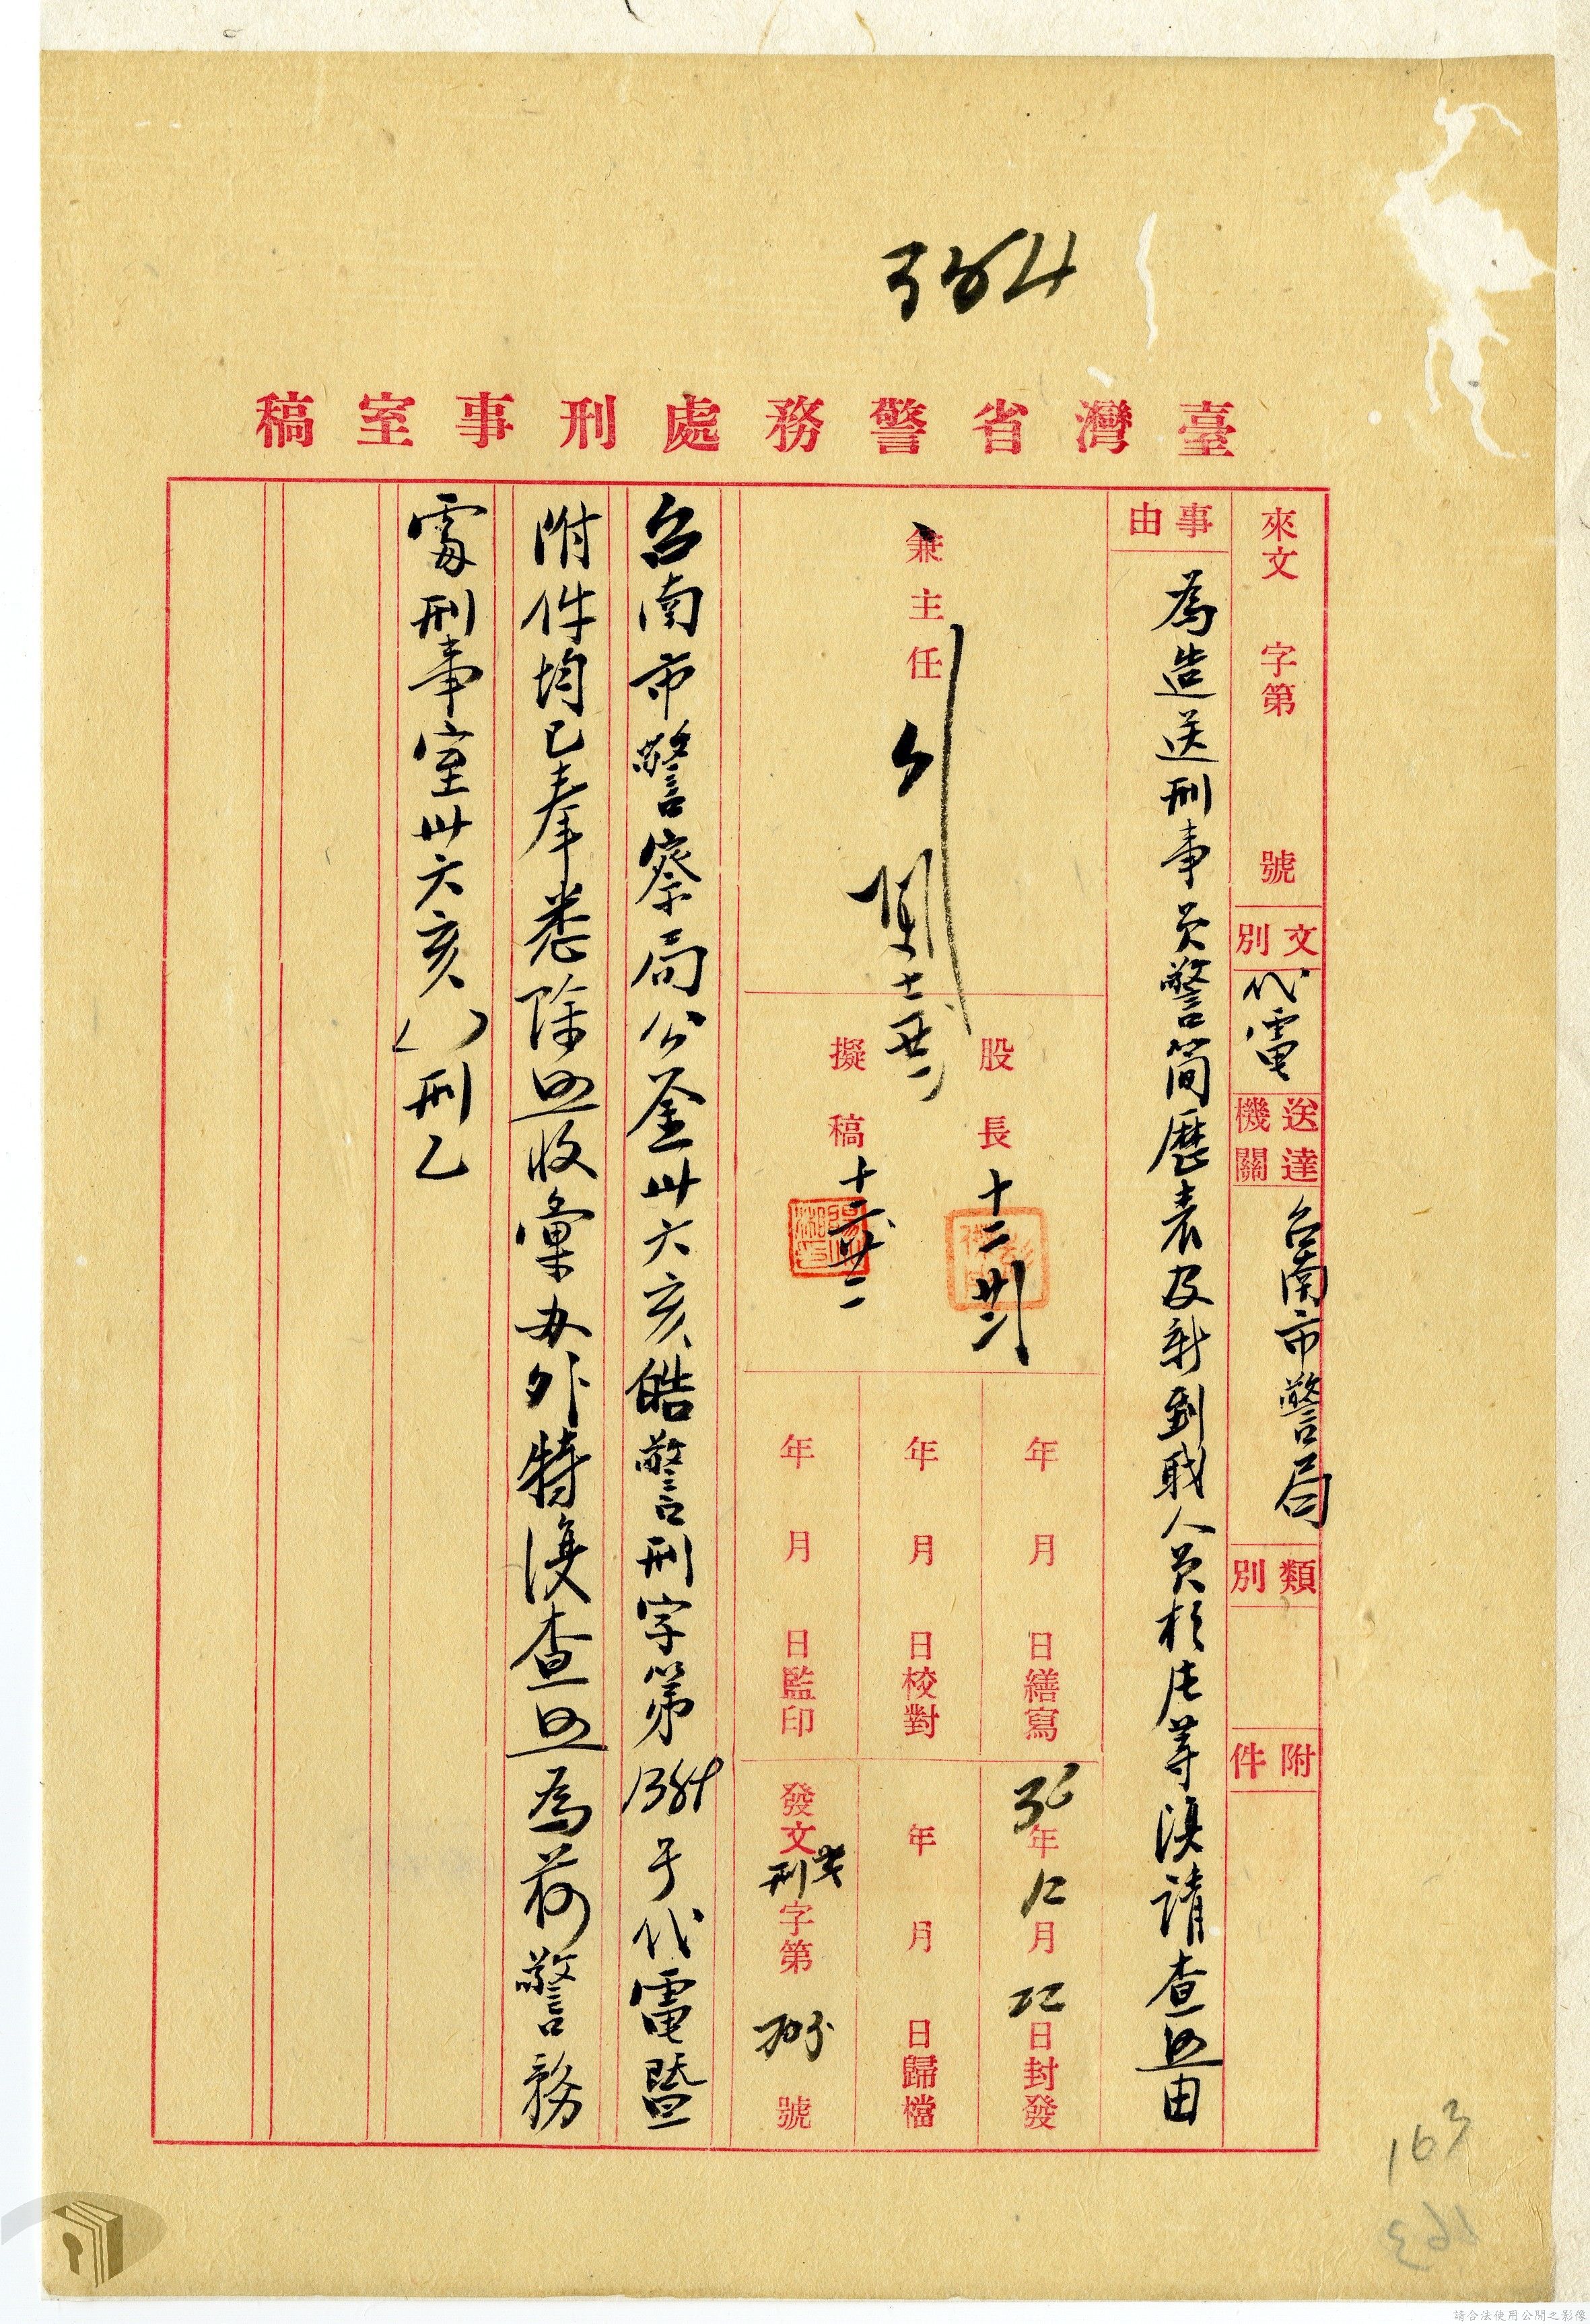 384
臺灣省警務處刑事室稿
來文 字第 號
文別 代電
送達機關 台南市警局
類別
附件
事由
為造送刑事員警简歷表及新到戝人員核店等復請查照由
兼主任
股長 十二
擬稿 十二 廿二
年 月 日繕寫
年 月 日校對
年 月 日監印
36年12月22日封發
年 月 日歸檔
發文 刑 字第 號
台南市警察局公鉴卅六亥皓警刑字第1384号代電暨
附件均已奉悉除照收彙办外特復查照為荷警務
處刑事室卅六亥( )刑乙
163
163
請合法使用公開之影像